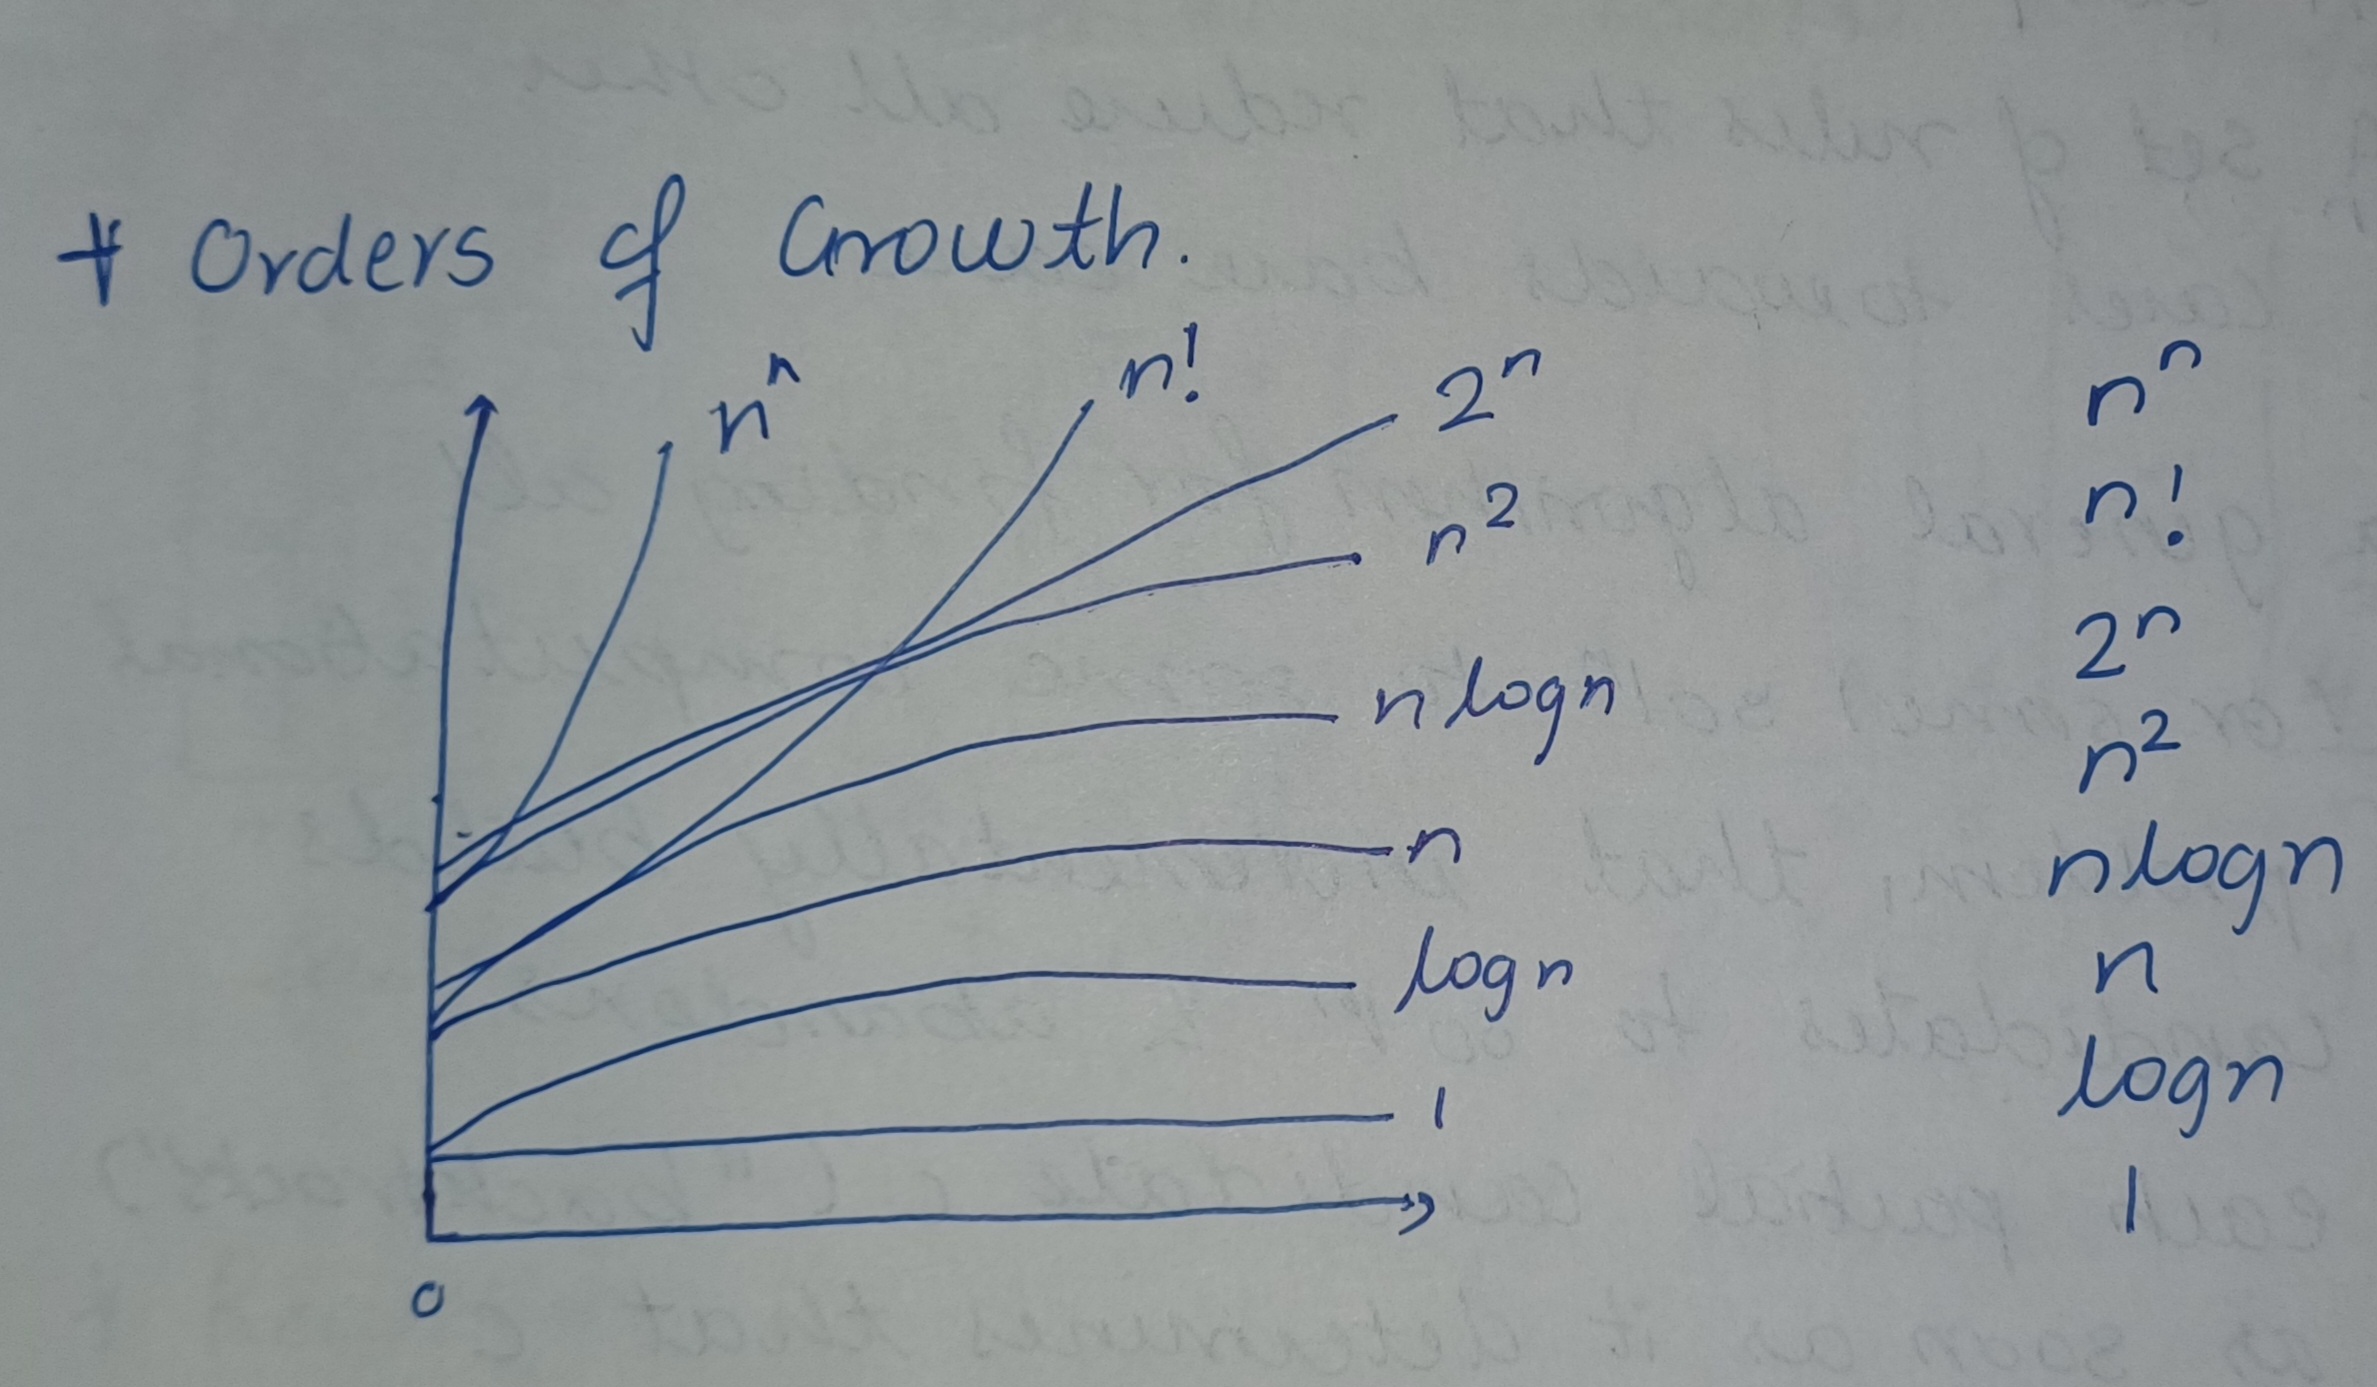 * Orders of Growth.
nⁿ
n!
2ⁿ
n²
n logn
n
logn
1
0
nⁿ
n!
2ⁿ
n²
nlogn
n
logn
1